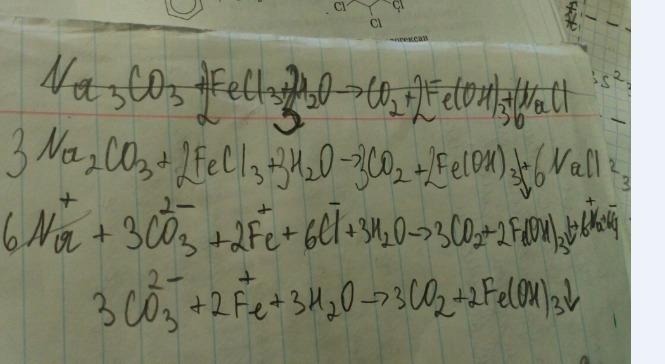 Cl Cl
Cl
Na₃CO₃ + 2FeCl₃ + 3H₂O → CO₂ + 2Fe(OH)₃ + 6NaCl
3Na₂CO₃ + 2FeCl₃ + 3H₂O → 3CO₂ + 2Fe(OH)₃↓ + 6NaCl
6Na⁺ + 3CO₃²⁻ + 2Fe⁺ + 6Cl⁻ + 3H₂O → 3CO₂ + 2Fe(OH)₃↓ + 6Na⁺
3CO₃²⁻ + 2Fe⁺ + 3H₂O → 3CO₂ + 2Fe(OH)₃↓